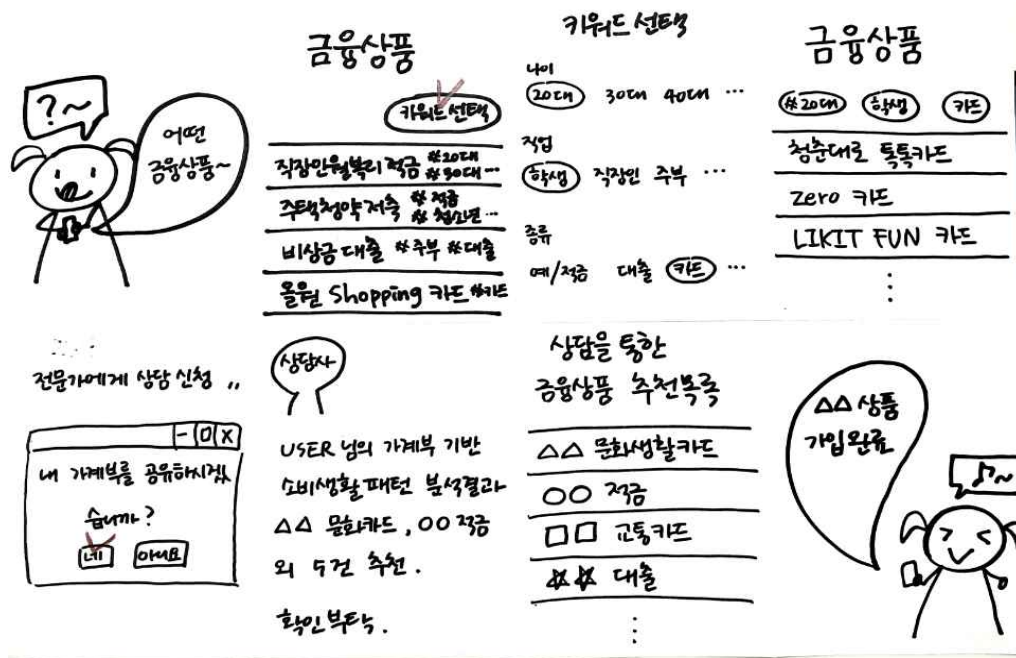 ?~
어떤
금융상품~
금융상품
키워드 선택
직장인월복리 적금 #20대 #30대...
주택청약저축 #적금 #청소년...
비상금 대출 #주부 #대출
올원 Shopping 카드 #카드
키워드 선택
나이
20대 30대 40대 ...
직업
학생 직장인 주부 ...
종류
예/적금 대출 카드 ...
금융상품
#20대 학생 카드
청춘대로 톡톡카드
zero 카드
LIKIT FUN 카드
전문가에게 상담 신청 ,,
- □ X
내 가계부를 공유하시겠
습니까?
네 아니요
상담사
USER 님의 가계부 기반
소비생활패턴 분석결과
△△ 문화카드, ○○ 적금
외 5건 추천.
확인부탁.
상담을 통한
금융상품 추천목록
△△ 문화생활카드
○○ 적금
□□ 교통카드
☆☆ 대출
△△ 상품
가입완료
♪~